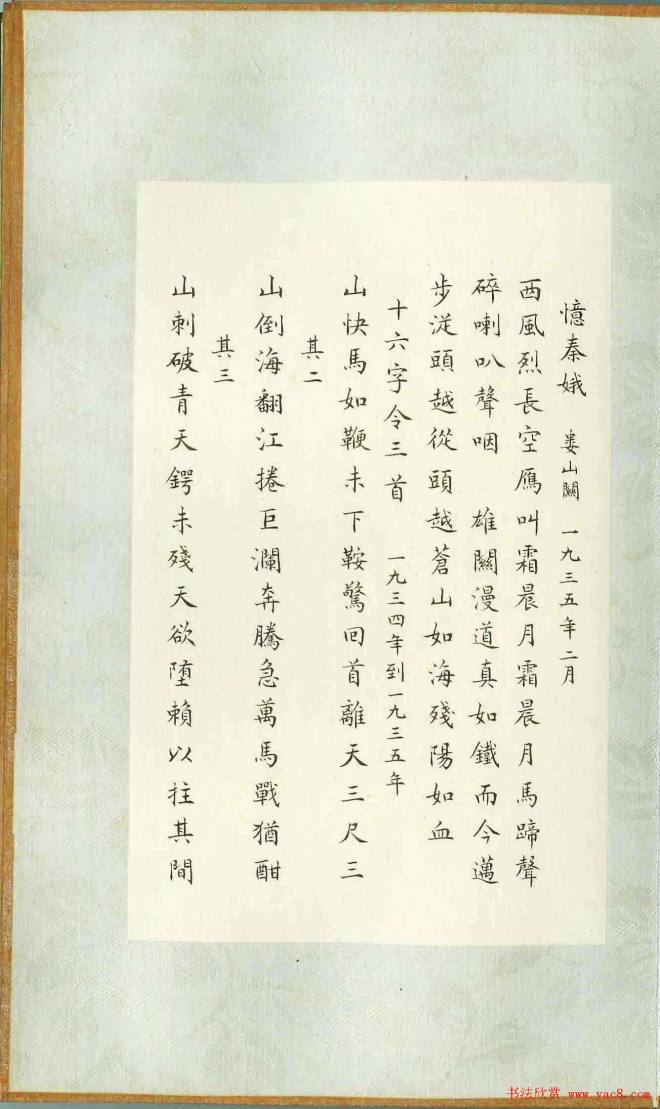 憶秦娥 婁山關 一九三五年二月
西風烈長空鴈叫霜晨月霜晨月馬蹄聲
碎喇叭聲咽 雄關漫道真如鐵而今邁
步從頭越從頭越蒼山如海殘陽如血
十六字令三首 一九三四年到一九三五年
山快馬如鞭未下鞍驚回首離天三尺三
其二
山倒海翻江捲巨瀾奔騰急萬馬戰猶酣
其三
山刺破青天鍔未殘天欲墮賴以拄其間
书法欣赏 www.yac8.com